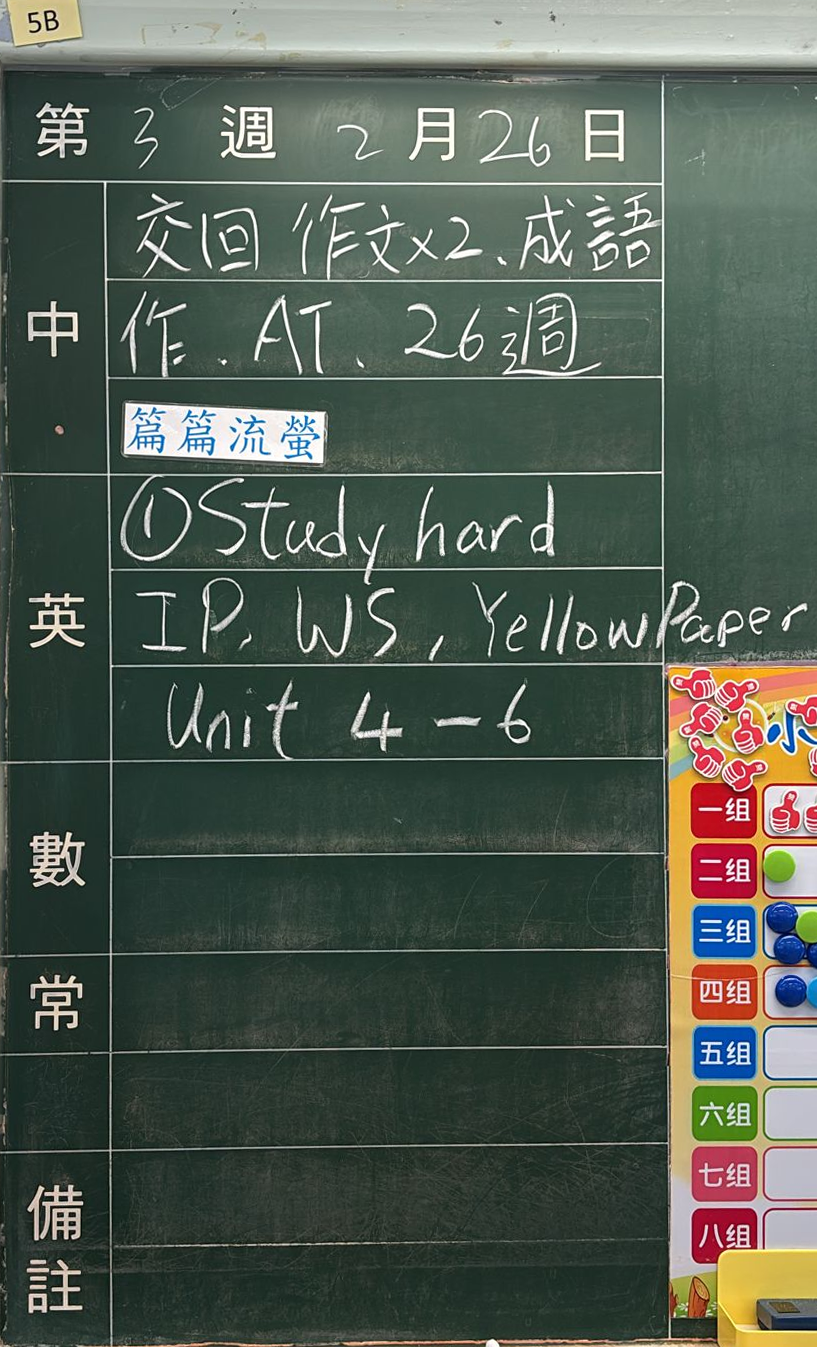 5B
第 3 週 2 月 26 日
中
交回 作文x2、成語
作、AT、26週
篇篇流螢
英
①Study hard
IP, WS, Yellow Paper
Unit 4-6
數
常
備註
小
一组
二组
三组
四组
五组
六组
七组
八组